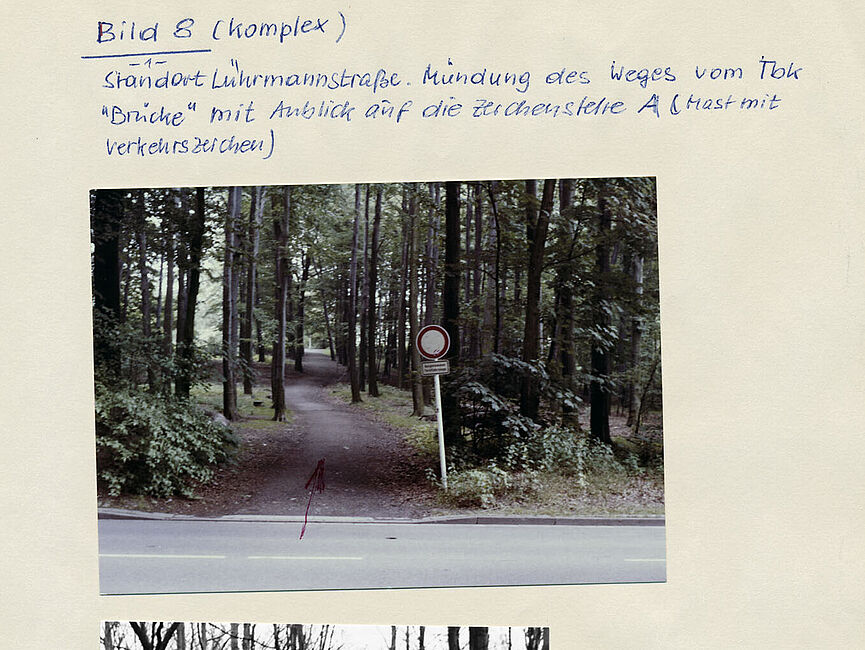 Bild 8 (Komplex)
-1-
Standort Lührmannstraße. Mündung des Weges vom TBK
"Brücke" mit Anblick auf die Zeichenstelle A (Mast mit
Verkehrszeichen)